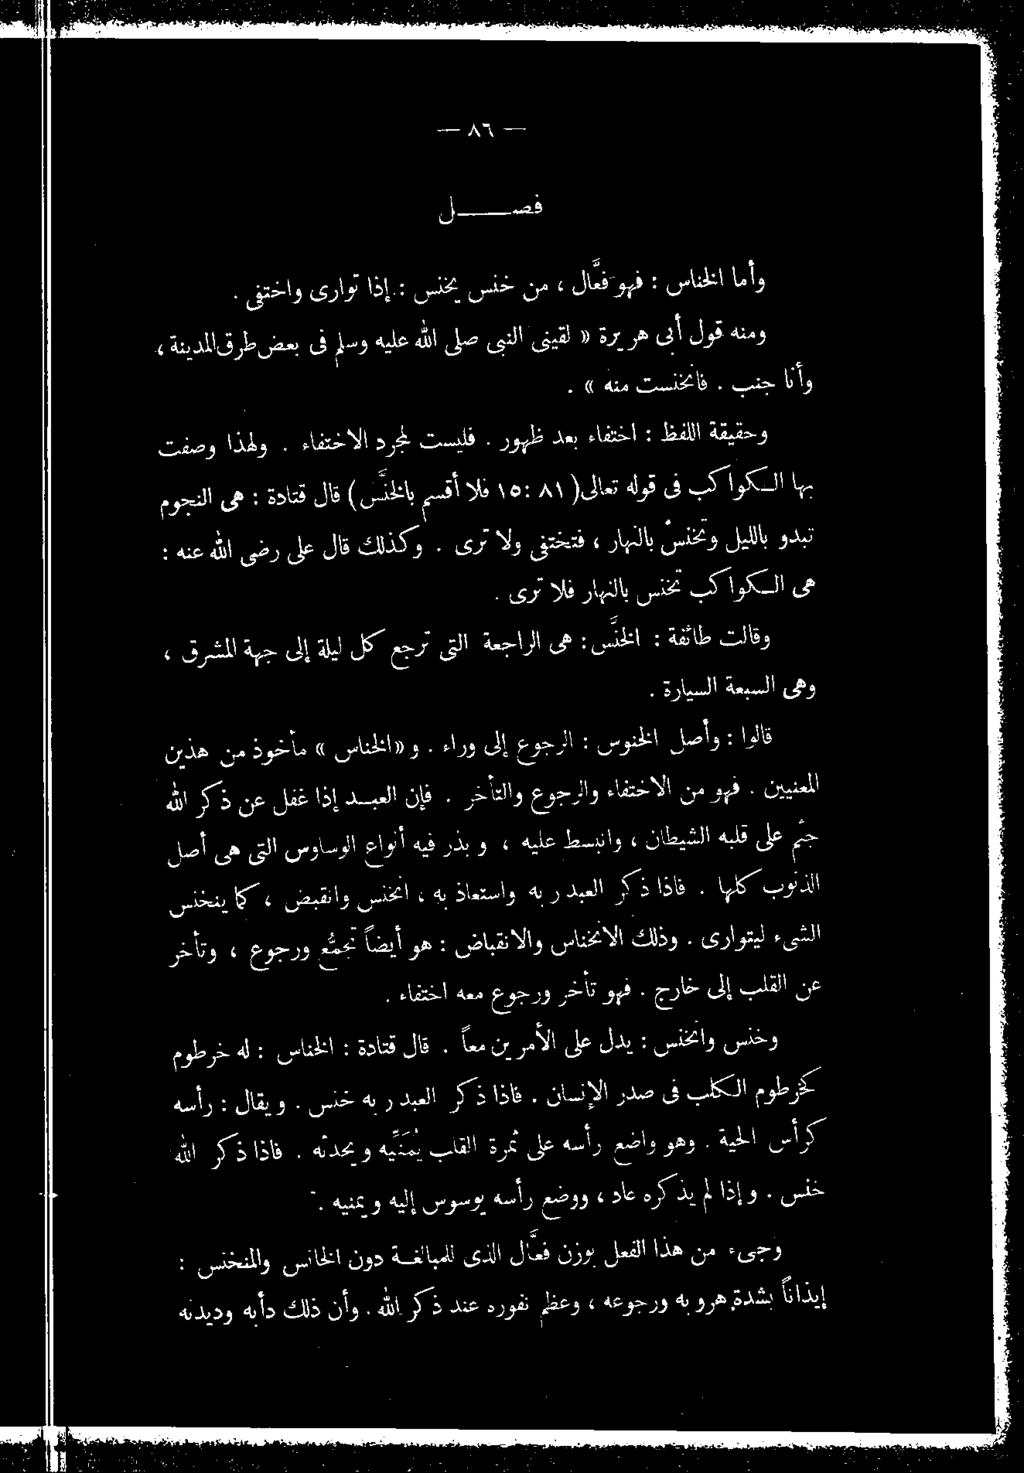 — ٨٦ —
فصـــــل
وأما الخناس : فهو فعَّال ، من خنس يخنس : إذا توارى واختفى .
ومنه قول أبى هريرة « لقينى النبى صلى الله عليه وسلم فى بعض طرق المدينة ،
وأنا جنب . فانخنست منه » .
وحقيقة اللفظ : اختفاء بعد ظهور . فليست لمجرد الاختفاء . ولهذا وصفت
بها الـكواكب فى قوله تعالى ( ٨١ : ١٥ فلا أقسم بالخنَّس ) قال قتادة : هى النجوم
تبدو بالليل وتخنسُ بالنهار ، فتختفى ولا ترى . وكذلك قال على رضى الله عنه :
هى الـكواكب تخنس بالنهار فلا ترى .
وقالت طائفة : الخنَّس : هى الراجعة التى ترجع كل ليلة إلى جهة المشرق ،
وهى السبعة السيارة .
قالوا : وأصل الخنوس : الرجوع إلى وراء . و« الخناس » مأخوذ من هذين
المعنيين . فهو من الاختفاء والرجوع والتأخر . فإن العبـد إذا غفل عن ذكر الله
جثم على قلبه الشيطان ، وانبسط عليه ، وبذر فيه أنواع الوساوس التى هى أصل
الذنوب كلها . فاذا ذكر العبد ربه واستعاذ به ، انخنس وانقبض ، كما ينخنس
الشىء ليتوارى . وذلك الانخناس والانقباض : هو أيضاً تجمُّع ورجوع ، وتأخر
عن القلب إلى خارج . فهو تأخر ورجوع معه اختفاء .
وخنس وانخنس : يدل على الأمرين معاً . قال قتادة : الخناس : له خرطوم
كخرطوم الـكلب فى صدر الإنسان . فاذا ذكر العبد ربه خنس . ويقال : رأسه
كرأس الحية . وهو واضع رأسه على ثمرة القلب يُمَنِّيه ويحدثه . فاذا ذكر الله
خنس . وإذا لم يذكره عاد ، ووضع رأسه يوسوس إليه ويمنيه .
وجىء من هذا الفعل بوزن فعَّال الذى للمبالغـة دون الخانس والمنخنس :
إيذاناً بشدة هروبه ورجوعه ، وعظم نفوره عند ذكر الله . وأن ذلك دأبه وديدنه